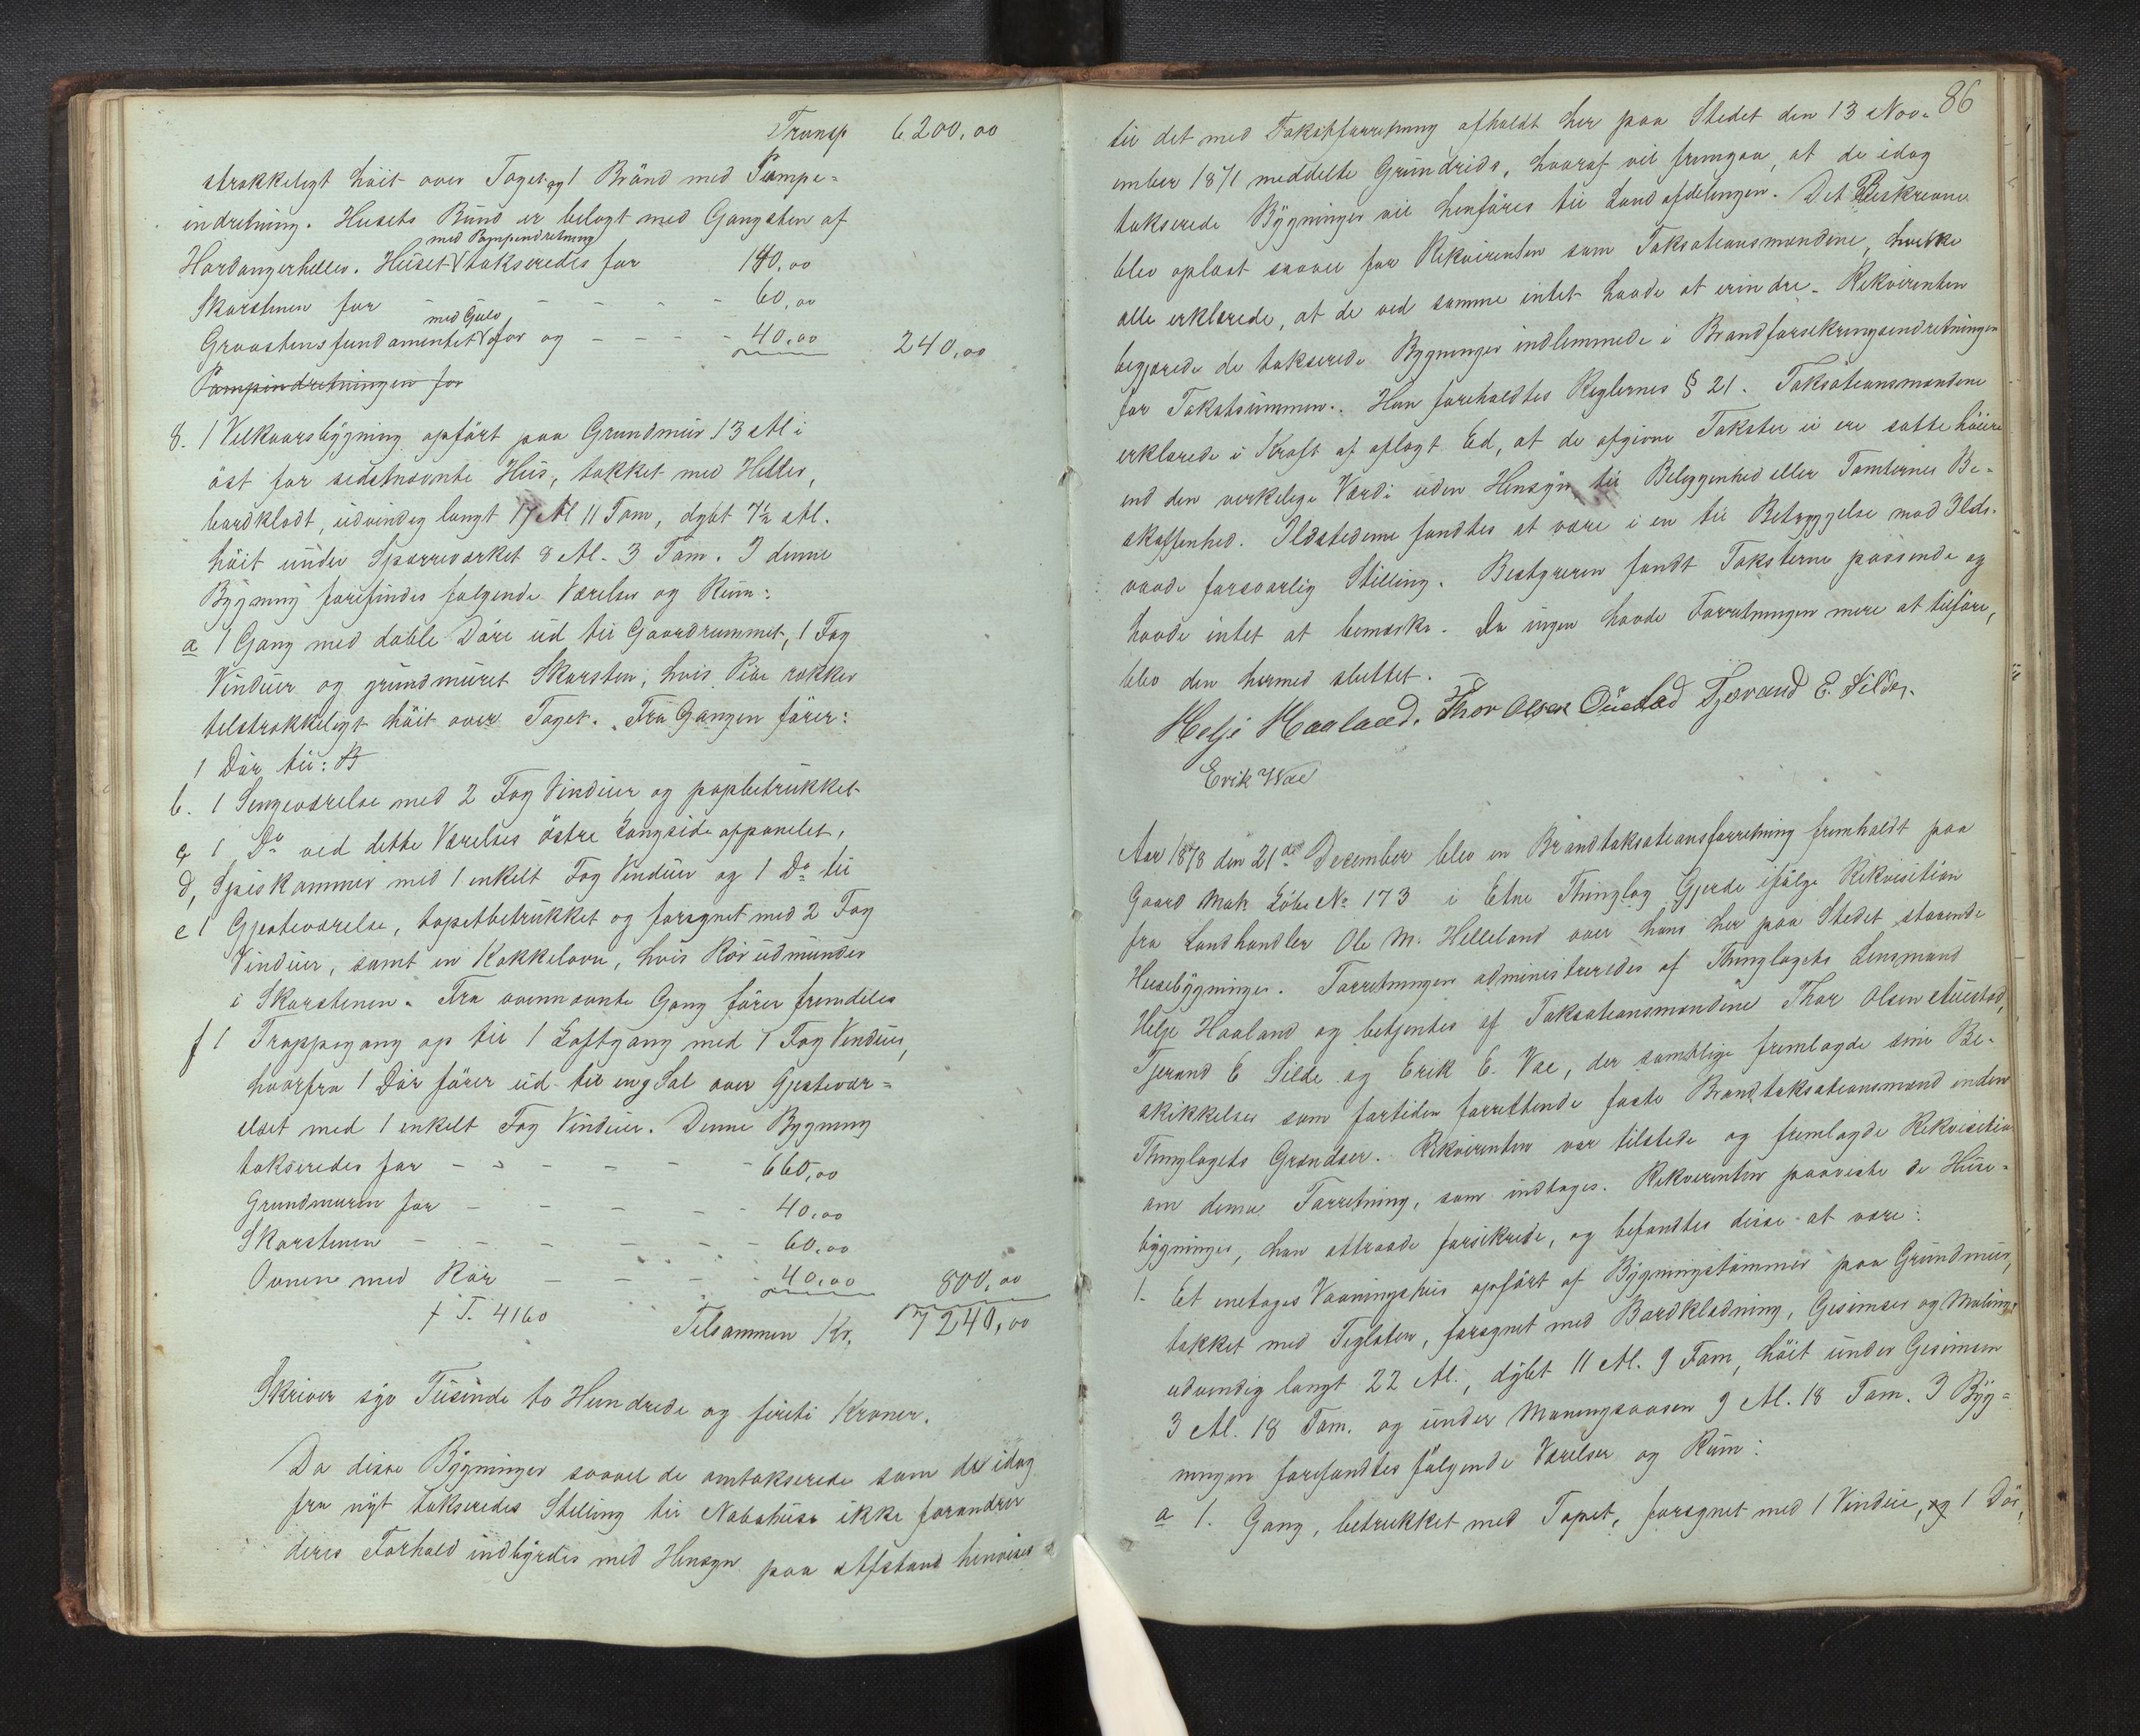 Transp 6200,00
strækkeligt höit over Taget og 1 Brönd med Pumpe-
indretning. Husets Bund er belagt med Gangsten af
Hardangerheller. Huset med Pumpindretning takseredes for 140,00
Skorstenen for - - - - 60,00
Graastensfundamentet med Gulv for og - - - - 40,00 240,00
Pumpindretningen for
8. 1 Velkaarsbygning opfört paa Grundmur 13 Al i
öst for sidstnævnte Hus, tækket med Heller,
bordklædt, udvindig langt 17 Al 11 Tom, dybt 7½ Al.
höit under Sparreværket 8 Al. 3 Tom. I denne
Bygning forefindes følgende Værelser og Rum:
a 1 Gang med doble Döre ud til Gaardrummet, 1 Fag
Vinduer og grundmuret Skorsten, hvis Pibe rækker
tilstrækkeligt höit over Taget. Fra Gangen förer:
1 Dör til:
b. 1 Sengeværelse med 2 Fag Vinduer og papbetrukket
c 1 Do ved dette Værelses östre Langside oppanelet,
d, Spiskammer med 1 enkelt Fag Vinduer og 1 Do til
e 1 Gjesteværelse, tapetbetrukket og forsynet med 2 Fag
Vinduer, samt en Kakkelovn, hvis Rör udmunder
i Skorstenen. Fra ovennævnte Gang förer fremdeles
f 1 Trappegang op til 1 Loftgang med 1 Fag Vinduer,
hvorfra 1 Dör förer ud til en Sal over Gjestevær-
elset med 1 enkelt Fag Vinduer. Denne Bygning
takseredes for - - - - - 660,00
Grundmuren for - - - - - 40,00
Skorstenen - - - - - - 60,00
Ovnene med Rör - - - - 40,00 800,00
f T. 4160 Tilsammen Kr. 7240,00
Skriver syv Tusinde to Hundrede og firti Kroner.
Da disse Bygninger saavel de omtakserede som de idag
fra nyt takseredes Stilling til Nabohuse ikke forandrer
deres Forhold indbyrdes med Hensyn paa Afstand henvises
86
til det med Takstforretning afholdt her paa Stedet den 13 Nov-
ember 1871 meddelte Grundrids, hvoraf vil fremgaa, at de idag
takserede Bygninger vil henföres til Landafdelingen. Det Beskrevne
blev oplæst saavel for Rekvirenten som Taksationsmændene, hvilke
alle erklærede, at de ved samme intet havde at erindre. Rekvirenten
begjærede de takserede Bygninger indlemmede i Brandforsikringsindretningen
for Takstsummen. Han foreholdtes Reglernes § 21. Taksationsmændene
erklærede i Kraft af aflagt Ed, at de afgivne Takster ei ere satte höiere
end den verkelige Værdi uden Hensyn til Beliggenhed eller Tomternes Be-
skaffenhed. Ildstederne fandtes at være i en til Betryggelse mod Ilds-
vaade forsvarlig Stilling. Bestyreren fandt Taksterne passende og
havde intet at bemærke. Da ingen havde Forretningen mere at tilföre,
blev den hermed sluttet.
Helje Haaland. Thor Olsen Öuestad Tjerand E. Silde.
Erik Vae
Aar 1878 den 21de December blev en Brandtaksationsforretning fremholdt paa
Gaard Matr Löbe No 173 i Etne Thinglag Gjerde ifölge Rekvisition
fra Landhandler Ole M. Helleland over hans her paa Stedet staaende
Husebygninger. Forretningen administreredes af Thinglagets Lensmand
Helje Haaland og betjentes af Taksationsmændene Thor Olsen Auestad,
Tjerand E Silde og Erik E. Vae, der samtlige fremlagde sine Be-
skikkelser som fortiden forrettende faste Brandtaksationsmænd inden
Thinglagets Grændser. Rekvirenten var tilstede og fremlagde Rekvisition
om denne Forretning, som indtages. Rekvirenten paaviste de Huse-
bygninger, han attraade forsikrede, og befandtes disse at være:
1. Et enetages Vaaningshus opfört af Bygningstömmer paa Grundmur,
tækket med Teglsten, forsynet med Bordklædning, Gesimser og Maling,
udvendig langt 22 Al., dybt 11 Al. 9 Tom, höit under Gesimsen
3 Al. 18 Tom. og under Möningsaasen 9 Al. 18 Tom. I Byg-
ningen forefandtes fölgende Værelser og Rum:
a 1. Gang, betrukket med Tapet, forsynet med 1 Vindue, og 1 Dör,